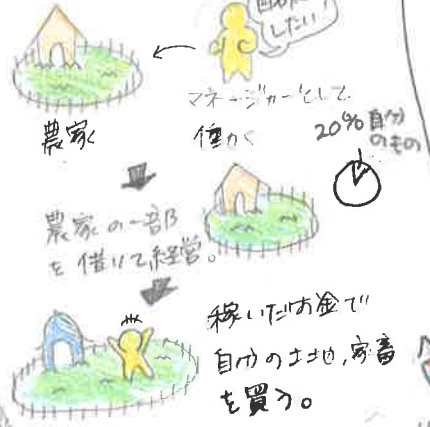 したい!
マネージャーとして
農家
働く
20%自分
のもの
農家の一部
を借りて経営。
稼いだお金で
自分の土地,家畜
を買う。